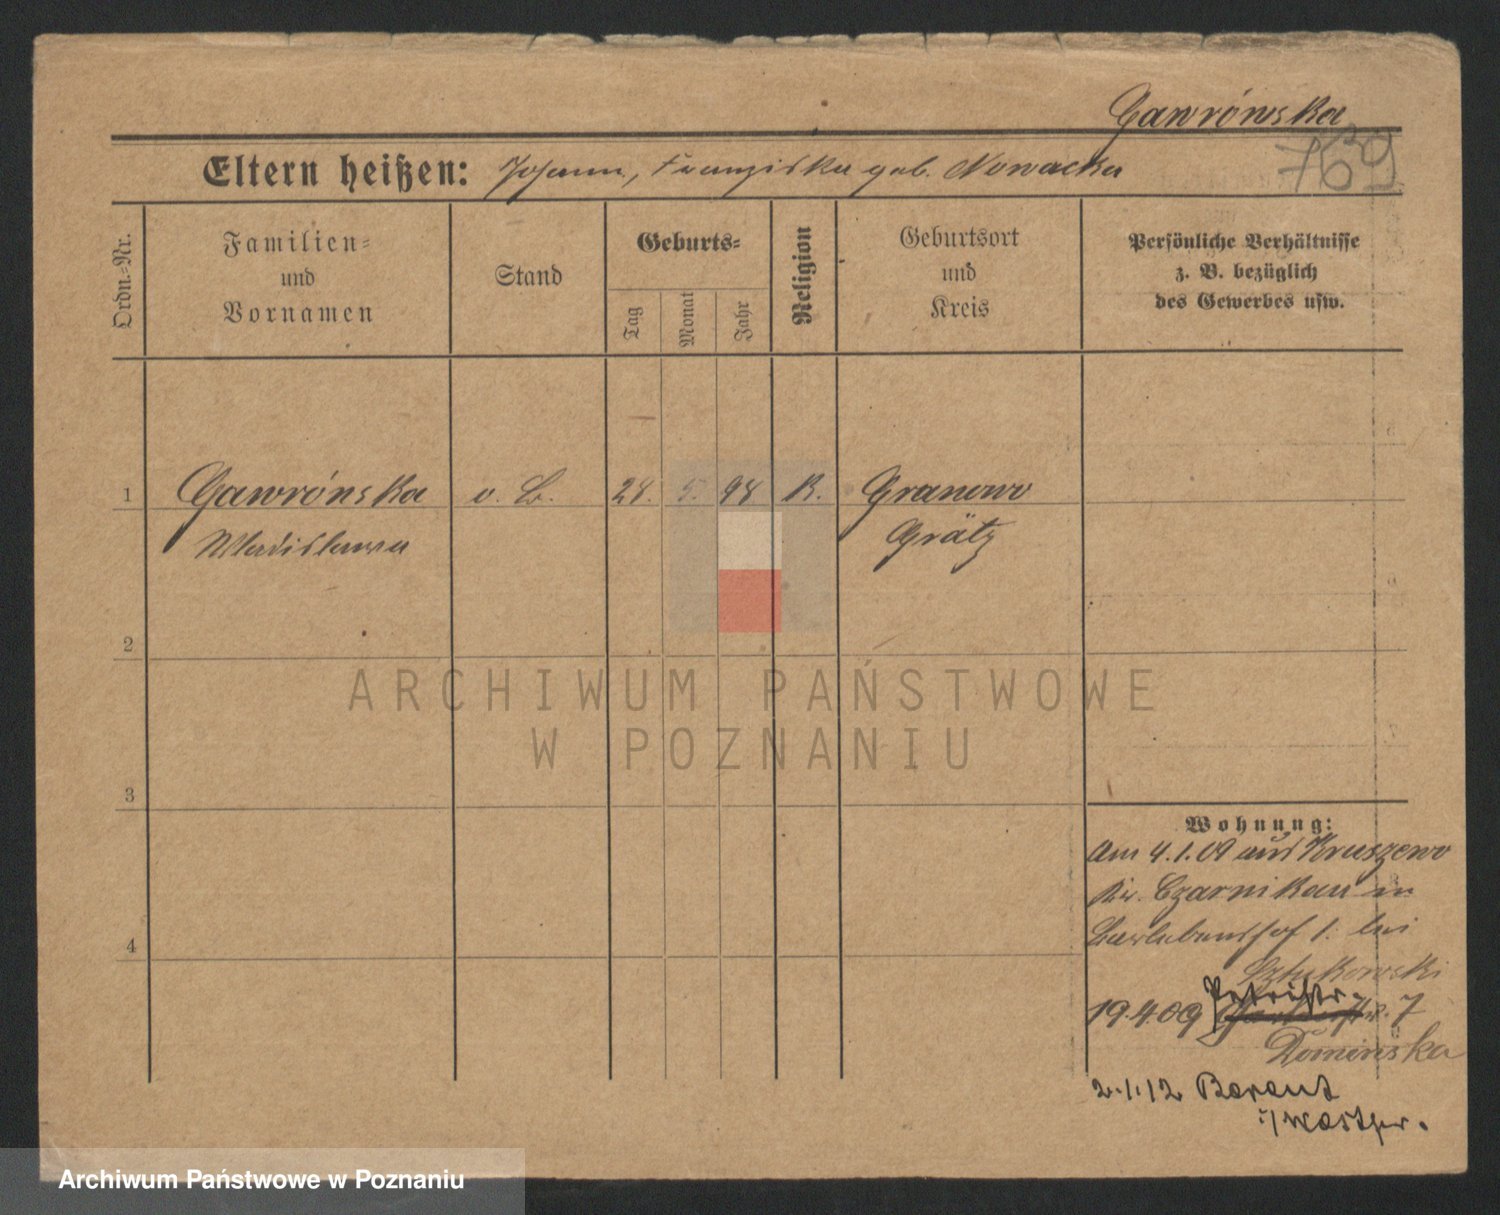 Gawrońska
769
Eltern heißen: Johann, Franziska geb. Nowacka
Ordn.-Nr.
Familien- und Vornamen
Stand
Geburts-
Tag
Monat
Jahr
Religion
Geburtsort und Kreis
Persönliche Verhältnisse
z. B. bezüglich
des Gewerbes usw.
1 Gawrońska o. B. 28. 5. 98 K. Granowo
Wladislawa Grätz
2
3
4
ARCHIWUM PAŃSTWOWE
W POZNANIU
Wohnung:
Am 4.1.09 aus Kruszewo
Kr. Czarnikau in
1. bei
Sztukowski
19.4.09 Petristr. 7
Dominska
2.1.12 Berent
i/Westpr.
Archiwum Państwowe w Poznaniu